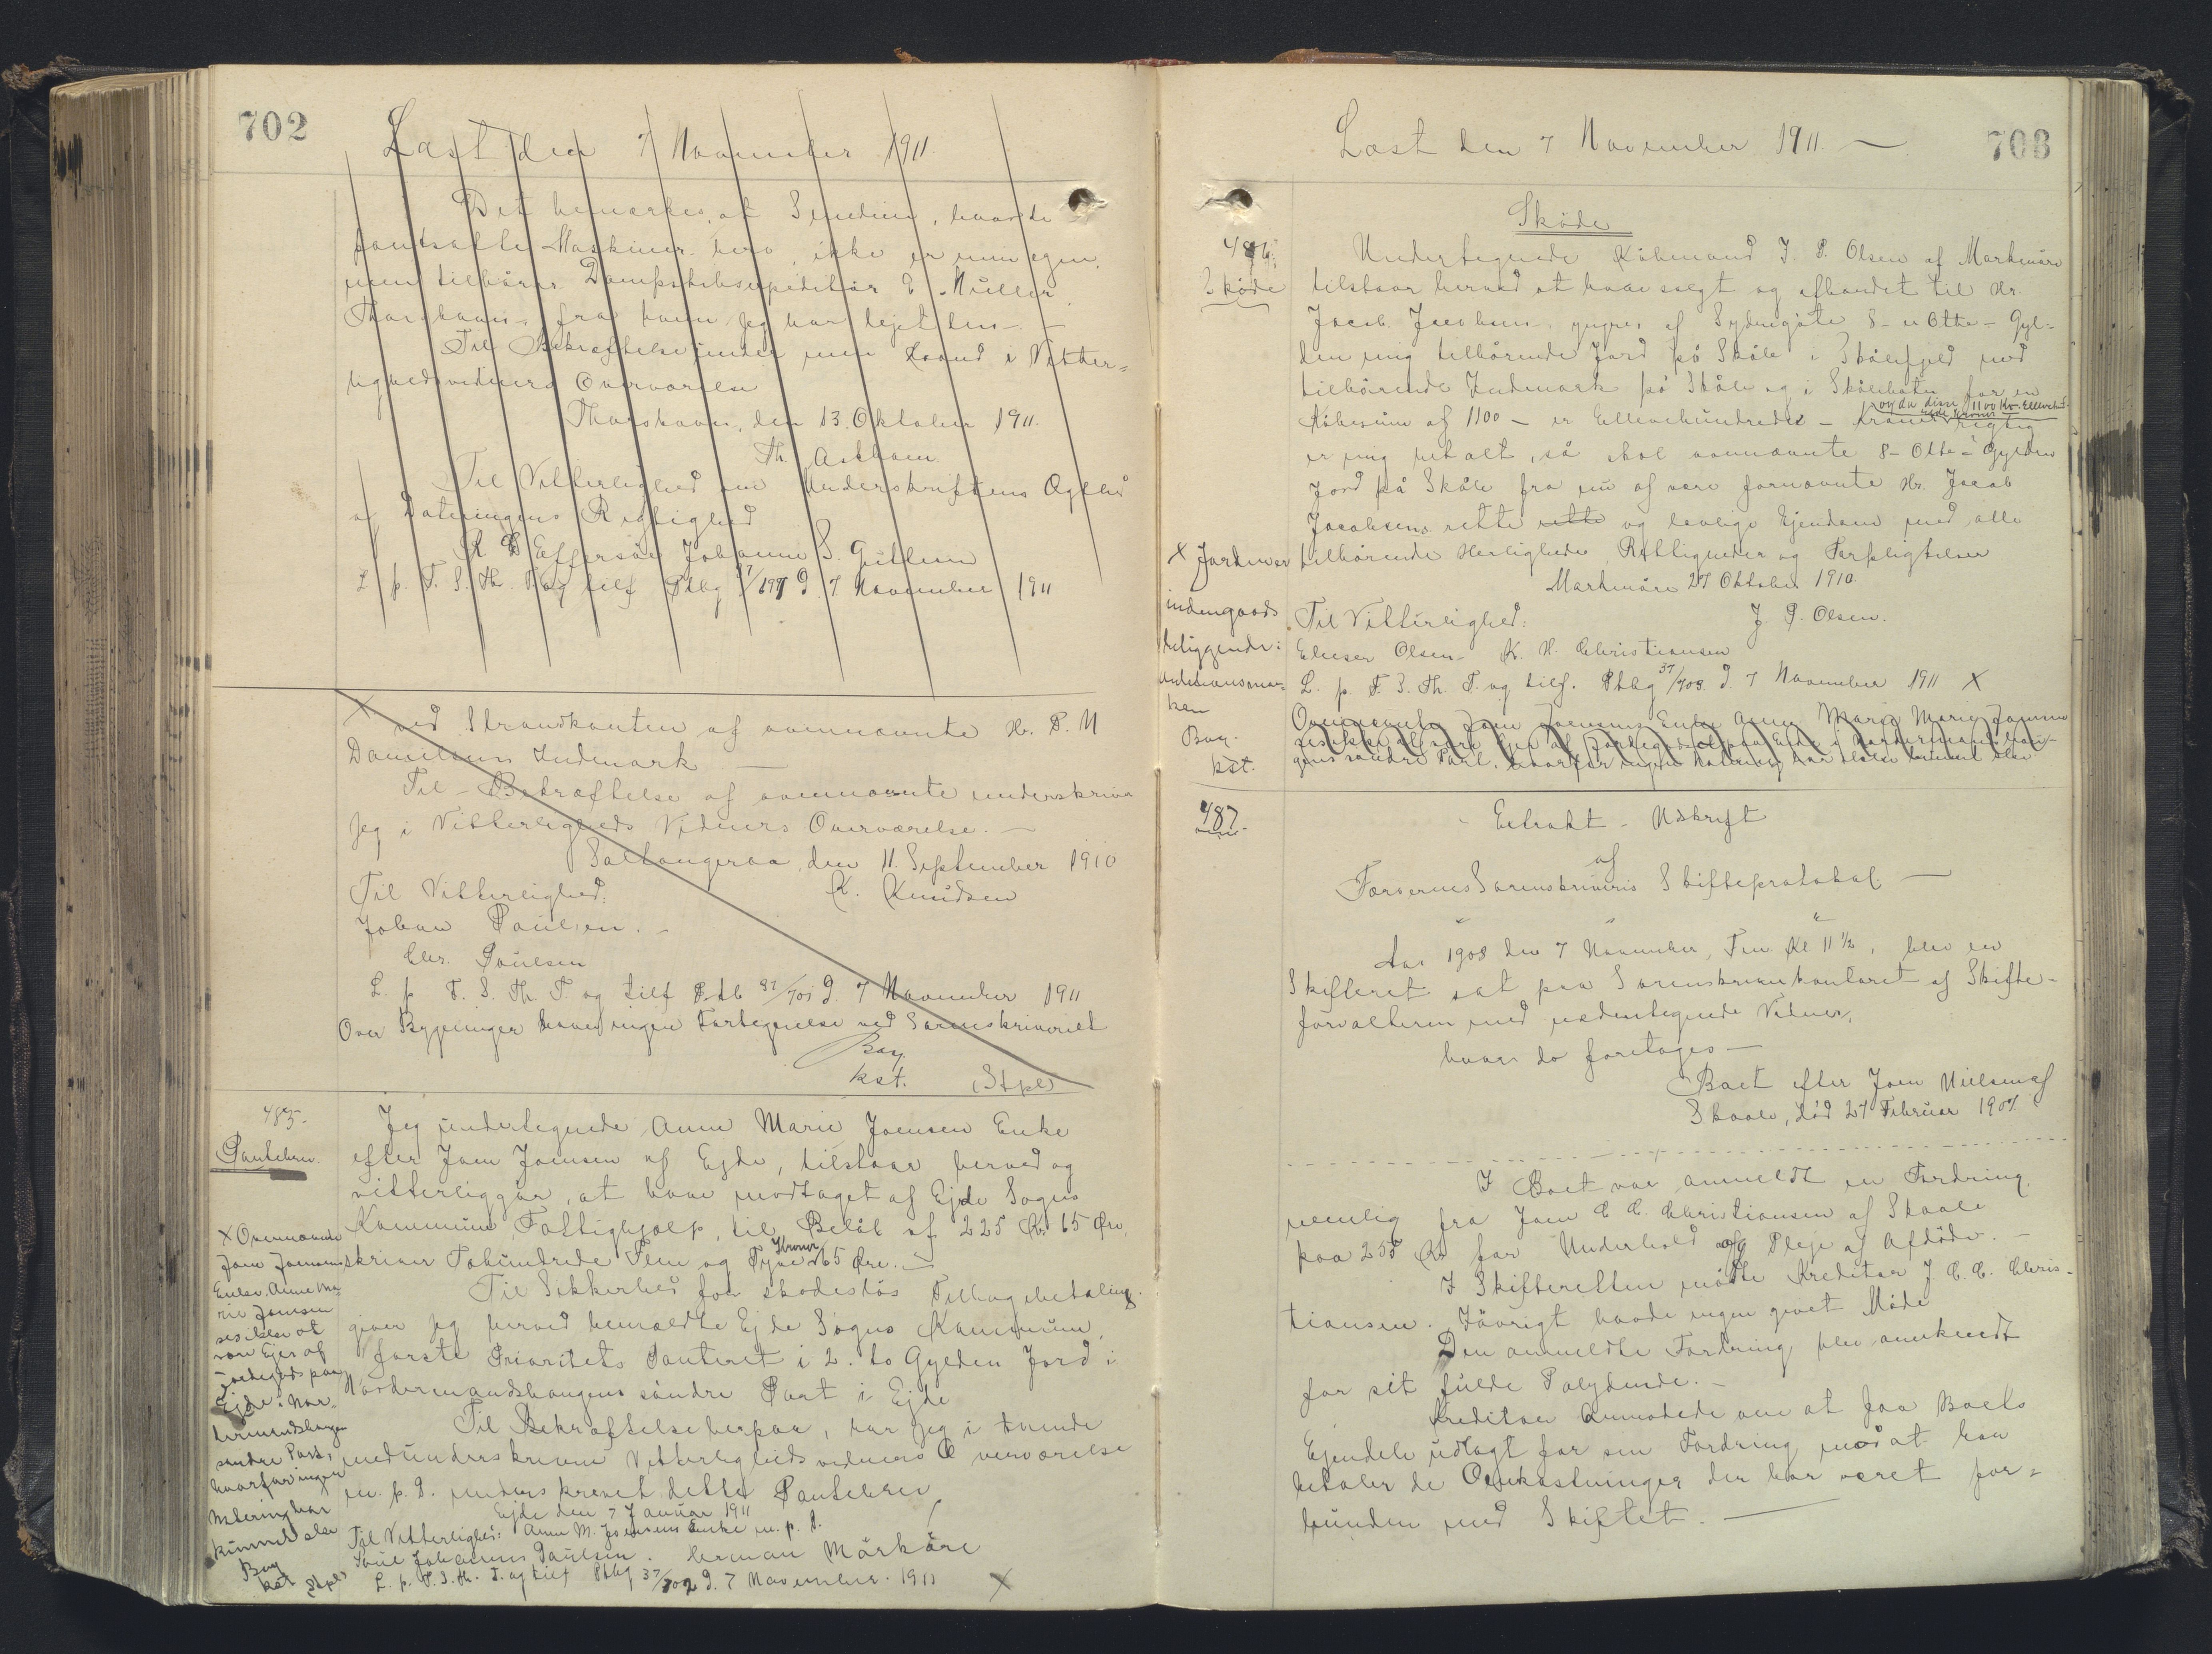 702
Læst den 7 November 1911.
Det bemærkes, at Smedien, hvori de
pantsatte Maskiner bero, ikke er min egen,
men tilhører Dampskibsexpeditør E. Müller
Thorshavn, fra hvem jeg har lejet den. —
Til Bekræftelse under min Haand i Vitter=
lighedsvidners Overværelse
Thorshavn, den 13. Oktober 1911.
Th. Askham
Til Vitterlighed om Underskriftens Ægthed
og Dateringens Rigtighed
R C Effersøe Johanne S. Guttesen
L. p. F. S. Th. T. og tilf Ptbg 37/ d. 7 November 1911
X ved Strandkanten af ovennævnte Hr. P. M
Danielsens Indmark —
Til Bekræftelse af ovennævnte underskriver
jeg i Vitterligheds Vidners Overværelse. —
Saltangeraa, den 11. September 1910
Til Vitterlighed: K. Knudsen
Johan Poulsen. —
Chr. Poulsen
L. p F. S. Th. T. og tilf Ptb 37/701 d. 7 November 1911
Over Bygninger haves ingen Fortegnelse ved Sorenskriveriet
Bay
kst. (Stpl)
485.
Pantebrev.
Jeg undertegnede Anne Marie Joensen Enke
efter Joen Joensen af Ejde, tilstaar herved og
vitterliggør, at have modtaget af Ejde Sogns
Kommune Fattighjælp, til Beløb af 225 Kr 65 Øre,
skriver Tohundrede Fem og Tyve Kroner 65 Øre. —
Til Sikkerhed for skadesløs Tilbagebetaling
giver jeg herved bemeldte Ejde Sogns Kommune,
første Prioritets Panteret i 2. to Gylden Jord i
Nordermandshougens søndre Part i Ejde
Til Bekræftelse herpaa, har jeg i tvende
medunderskrevne Vitterlighedsvidners Overværelse
m. p. P. underskrevet dette Pantebrev
Ejde den 7 Januar 1911
Til Vitterlighed: Anne M. Joensens Enke m. p. P.
Poul Johannes Poulsen. Herman Mörköre
L. p. F. S. Th. T. og tilf Ptbg 37/702 d. 7 November 1911 X
X Ovennævnte
Joen Joensens
Enke, Anne Ma=
rie Joensen
ses ikke at
være Ejer af
Jordegods paa
Ejde i Nor=
dermandshougens
søndre Part,
hvorfor ingen
Notering har
kunnet ske
Bay
kst (Stpl)
703
Læst den 7 November 1911. —
Skøde
486.
Skøde
Undertegnede Købmand J. P. Olsen af Morkenøre
tilstaar herved at have solgt og afhændet til Hr.
Jacob Jacobsen yngre, af Sydregøte 8 — er Otte — Gyl=
den mig tilhørende Jord på Skåle i Skålefjeld med
tilhørende Indmark på Skåle og i Skålebotn for en
Købesum af 1100 — er Ellevehundrede — Kroner og da disse 1100 Kr. Ellevehundrede Kroner rigtig
er mig betalt, så skal ovennævnte 8 — Otte — Gylden
Jord på Skåle fra nu af være fornævnte Hr. Jacob
Jacobsens rette rette og lovlige Ejendom med alle
tilhørende Herligheder Rettigheder og Forpligtelser
Morkenøre 27 Oktober 1910
Til Vitterlighed: J. P. Olsen.
Elieser Olsen — K. H. Christiansen
L. p. F. S. Th. T. og tilf. Ptbg 37/703. d. 7 November 1911 X
X Jorden er
indengaards
beliggende:
ken
Bay.
kst.
Ovennævnte Joen Joensens Enke Anne Marie Marie Joensen
ses ikke at være Ejer af Jordegods paa Ejde i Nordermandshou=
gens søndre Part, hvorfor ingen Notering har kunnet ske
487.
Extrakt — Udskrift
af
Færøernes Sorenskriveris Skifteprotokol —
" " "
Aar 1908 den 7 November, Fm. Kl 11 1/2, blev en
Skifteret sat paa Sorenskriverkontoret af Skifte=
forvalteren med nedentegnede Vidner,
hvor da foretoges —
Boet efter Joen Nielsen af
Skaale, død 27 Februar 1907.
I Boet var anmeldt en Fordring,
nemlig fra Joen C. C. Christiansen af Skaale
paa 255 Kr for Underhold og Pleje af Afdøde. —
I Skifteretten mødte Kreditor J. C. C. Chris=
tiansen. Iøvrigt havde ingen givet Møde
Den anmeldte Fordring blev anerkendt
for sit fulde Palydende. —
Kreditor anmodede om at faa Boets
Ejendele udlagt for sin Fordring mod at han
betaler de Omkostninger der har været for=
bunden med Skiftet. —